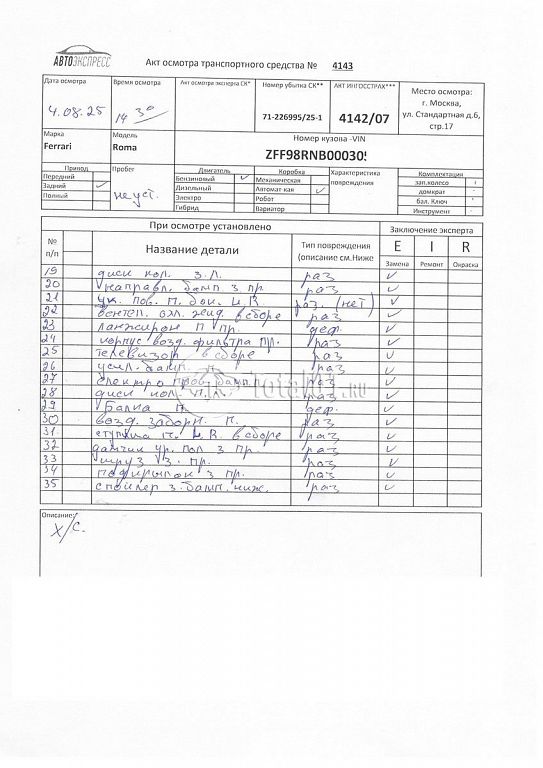 АВТОЭКСПРЕСС
Акт осмотра транспортного средства № 4143
Дата осмотра
Время осмотра
Акт осмотра эксперта СК*
Номер убытка СК**
АКТ ИНГОССТРАХ***
Место осмотра:
г. Москва,
ул. Стандартная д.6,
стр.17
4.08.25
14 30
71-226995/25-1
4142/07
Марка
Модель
Номер кузова -VIN
Ferrari
Roma
ZFF98RNB000305
Привод
Пробег
Двигатель
Коробка
Характеристика повреждения
Комплектация
Передний
Бензиновый ✓
Механическая
зап.колесо
Задний ✓
не уст.
Дизельный
Автомат кая ✓
домкрат
Полный
Электро
Робот
бал. Ключ
Гибрид
Вариатор
Инструмент
При осмотре установлено
Заключение эксперта
№ п/п
Название детали
Тип повреждения (описание см.Ниже
E I R
Замена Ремонт Окраска
19 диск кол. з.л. раз ✓
20 направл. бамп з пр. раз ✓
21 ук. пов. п. бок. ц. R раз. (нет) ✓
22 вентел. охл. жид. в сборе раз ✓
23 ланжирон п пр. деф. ✓
24 корпус возд. фильтра пр. раз ✓
25 телевизор в сборе раз ✓
26 усил. бамп. раз ✓
27 электро пров. бамп. раз ✓
28 диск кол. раз ✓
29 Балка п. деф. ✓
30 возд. заборн. п. раз ✓
31 ступица п. ц. R в сборе раз ✓
32 датчик ур. пол з пр. раз ✓
33 шруз з. пр. раз ✓
34 подкрылок з пр. раз ✓
35 спойлер з. бамп. ниж. раз ✓
Описание:
х/с.